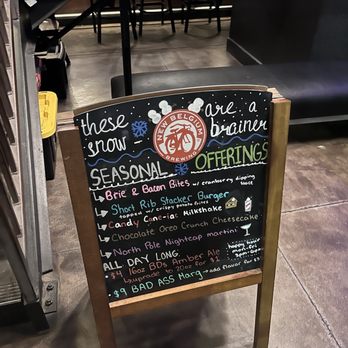 these are a
snow - brainer
NEW BELGIUM
BREWING
SEASONAL OFFERINGS
Brie & Bacon Bites w/ cranberry dipping sauce
Short Rib Stacker Burger
topped w/ crispy potato
Candy Milkshake
Chocolate Oreo Crunch Cheesecake
North Pole Nightcap martini
ALL DAY LONG
happy hour
mon-fri
3pm-6pm
$4 16oz BDs Amber Ale
upgrade to 20oz for $1
$9 BAD ASS Marg add flavor for